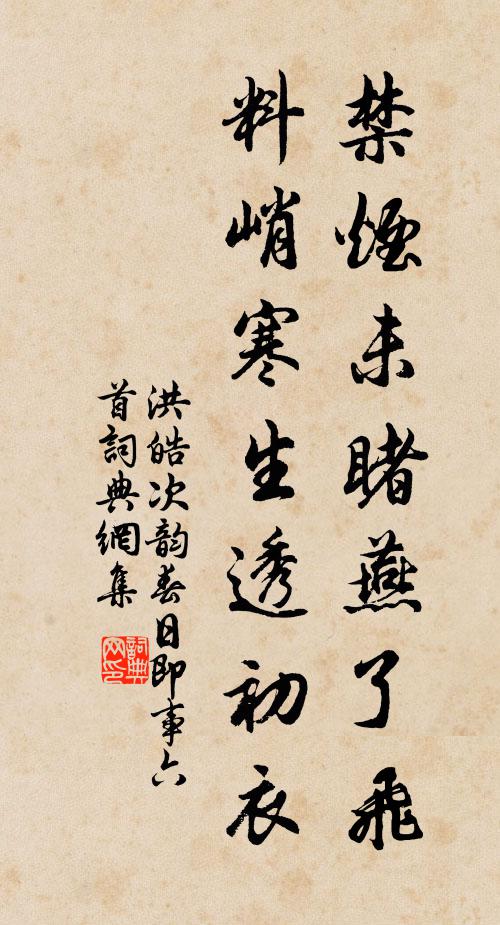 禁煙未睹燕了飛
料峭寒生透初衣
洪皓次韵春日即事六
首詞典網集
詞典网印